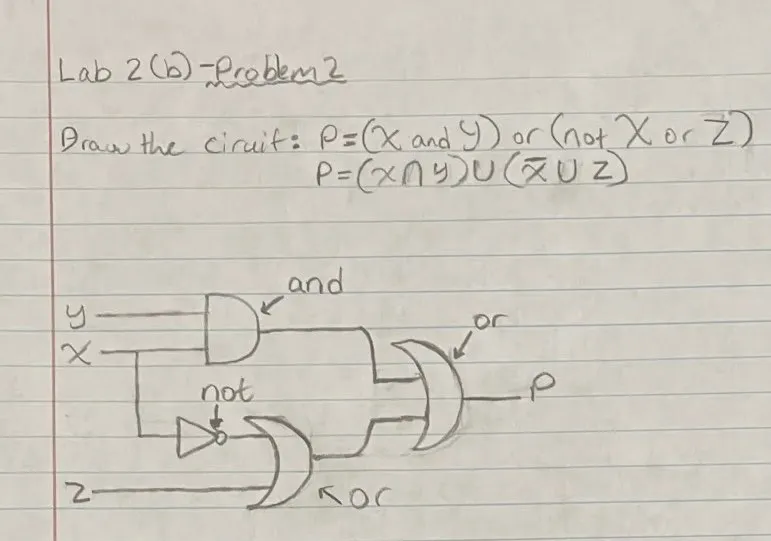 Lab 2(b)-Problem2
Draw the ciruit: P=(X and y) or (not X or Z)
P=(x∩y)∪(x̄ ∪ Z)
and
y
or
X
not
P
Z
or